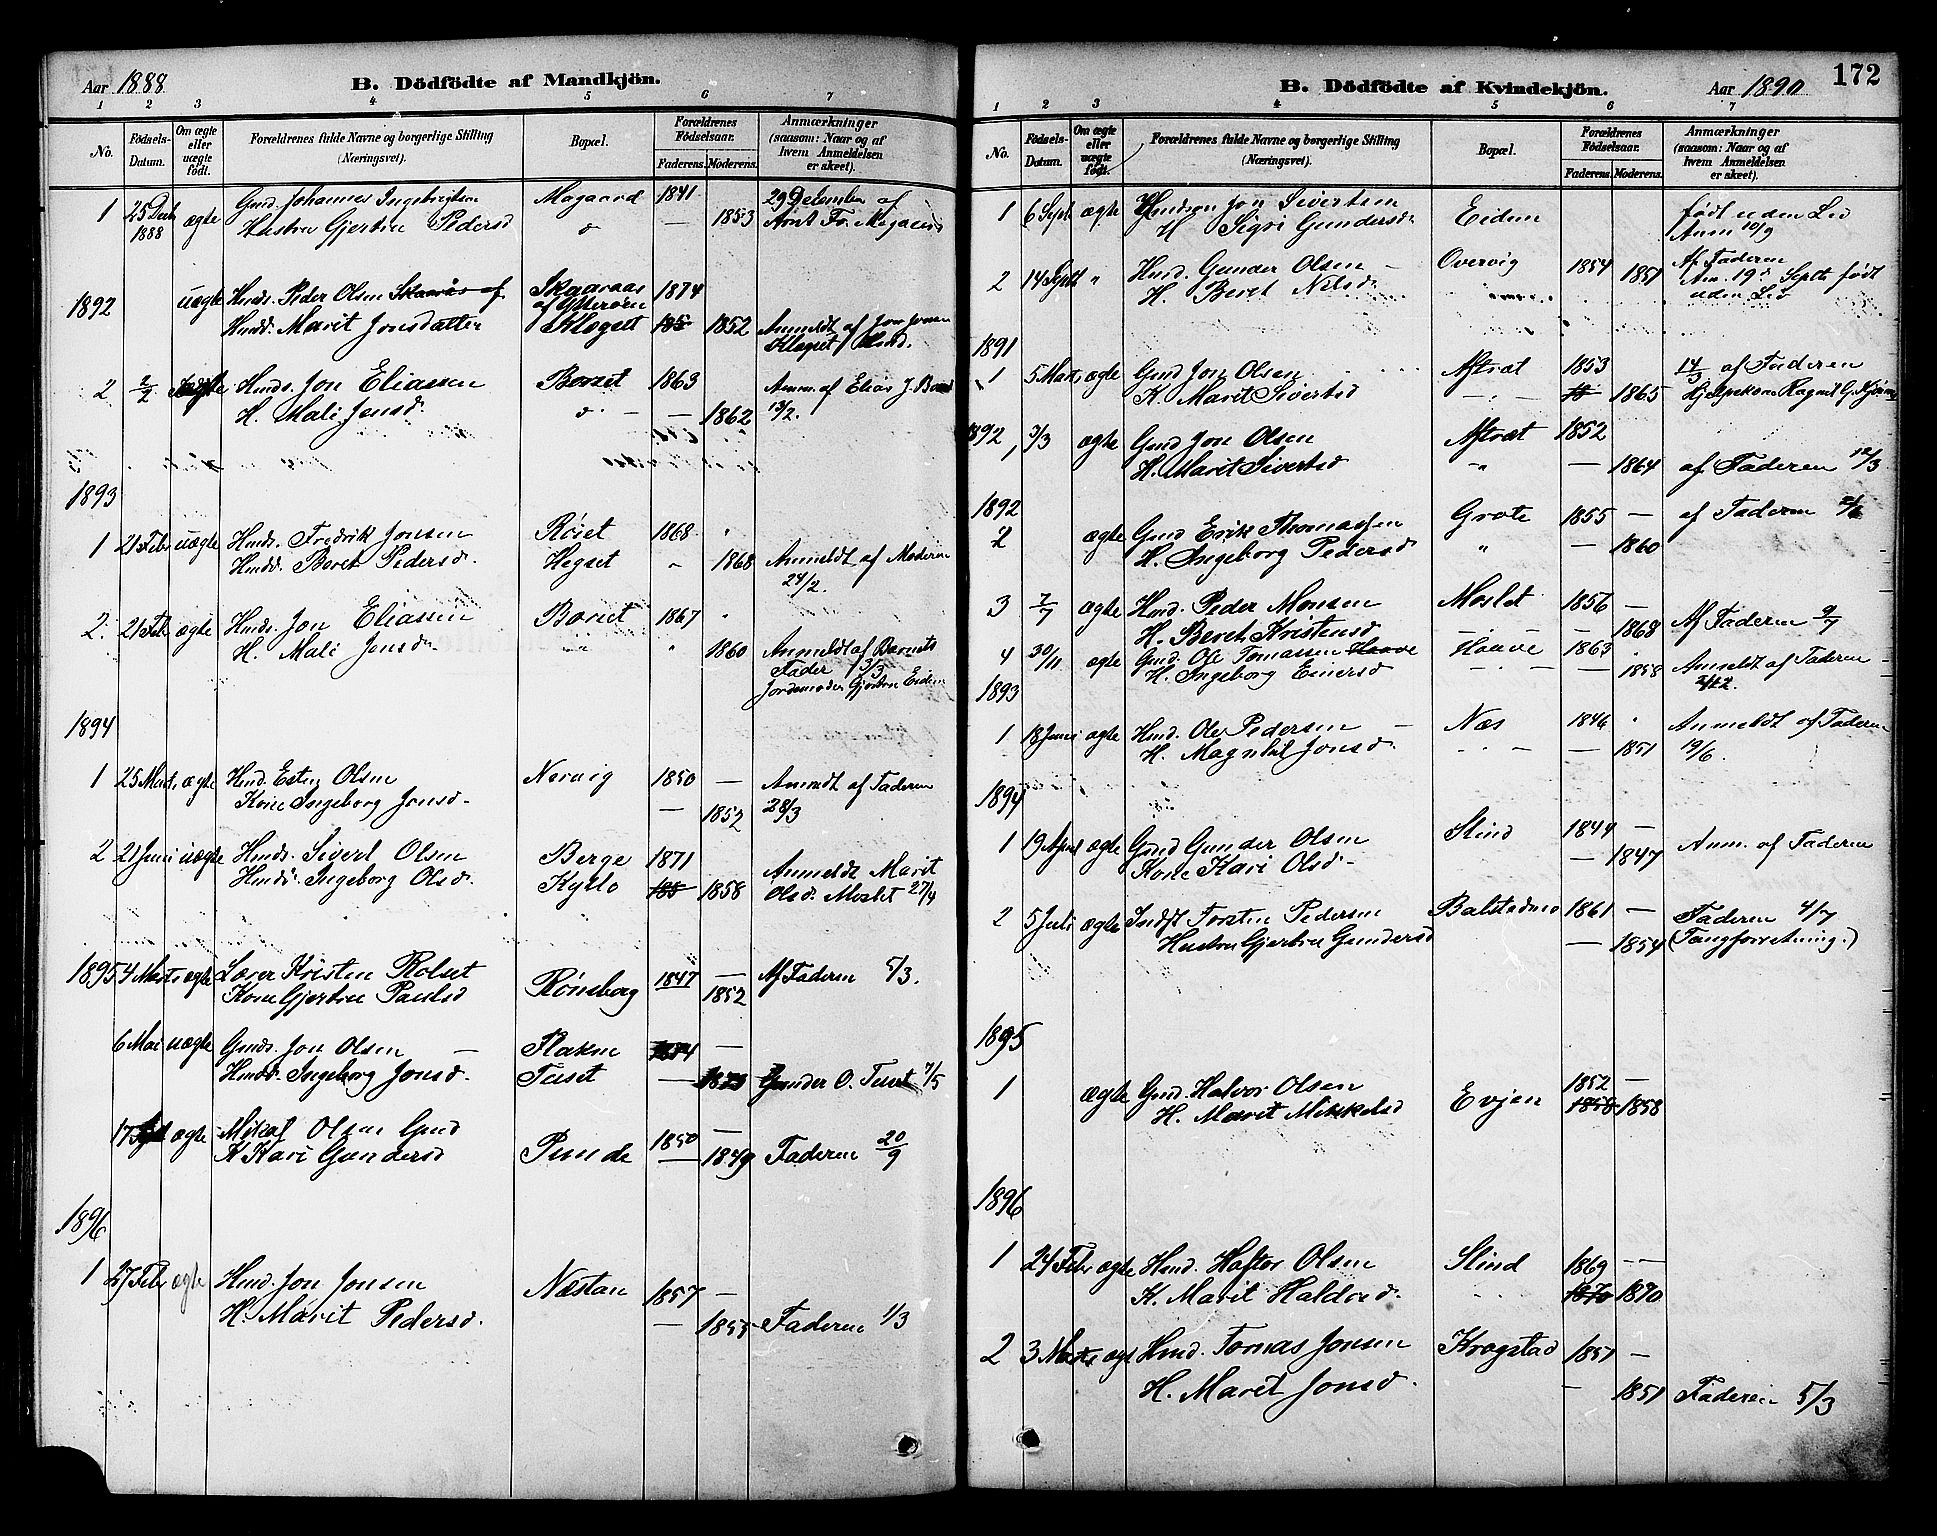 Aar 1888
B. Dödfödte af Mandkjön.
1 2 3 4 5 6 7
No.
Födsels-Datum.
Om ægte eller uægte födt.
Forældrenes fulde Navne og borgerlige Stilling (Næringsvei).
Bopæl.
Forældrenes Födselsaar.
Faderens. Moderens.
Anmærkninger (saasom: Naar og af hvem Anmeldelsen er skeet).
1 25 Decbr 1888 ægte Gmd. Johannes Ingebrigtsen Mogaard 1841 29 December af
Hustru Gjertru Pedersd 1853
1892 uægte Hmds. Peder Olsen Skaaraas af Skaaraas af Ytterøen 1874
Hmdd. Marit Jonsdatter Klegset 185 1852 Anmeldt af Jon Jonsen
Klegset Hmd.
2 2/2 ægte Hmds. Jon Eliassen Borset 1863 Anm. af Elias J.
H. Mali Jonsd. 1862 13/2.
1893
1 21 Febr uægte Hmds. Fredrik Jonsen Røset 1868
Hmdd. Beret Pedersd. Hegset 1868 Anmeldt af Modern
24/2.
2. 21 Feb ægte Hmds. Jon Eliassen Borset 1867
H. Mali Jonsd. 1860 Anmeldt af Barnets
Fader 3/3
Jordemoder Gjertru Eidem
1894
1 25 Marts ægte Hmd. Esten Olsen Nervig 1850 — Anmeldt af Faderen
Kone Ingeborg Jonsd. — 1852 28/3
2 21 Juni uægte Hmds. Sivert Olsen Berge 1871 Anmeldt Marit
Hmdd. Ingeborg Olsd. Kyllo 185 1858 Olsd. Moslet 27/4
1895 4 Marts ægte Lærer Kristen Rolset Rønsberg 1847 — Af Faderen 5/3.
Kone Gjertru Paulsd 1852
6 Mai uægte Gmds. Jon Olsen — Flaknn 1874 —
Hmdd. Ingeborg Jonsd. Tuset — Gunder O. Tuset 7/5
17 Sept ægte Olsen Gmd Punde 1850 —
K Kari Gundersd — 1849 Faderen 20/9
1896
1 27 Febr ægte Hmd. Jon Jonsen Næstan 1857 —
H. Marit Pedersd. — 1855 Faderen 1/3
172
B. Dödfödte af Kvindekjön.
Aar 1890
1 2 3 4 5 6 7
No.
Födsels-Datum.
Om ægte eller uægte födt.
Forældrenes fulde Navne og borgerlige Stilling (Næringsvei).
Bopæl.
Forældrenes Födselsaar.
Faderens. Moderens.
Anmærkninger (saasom: Naar og af hvem Anmeldelsen er skeet).
1 6 Sept ægte Jon Sivertsen Eidem født uden Liv
H Sigri Gundersd. Anm 10/9
2 14 Sept " Hmd. Gunder Olsen — Overvig 1854 Af Faderen
H. Beret Nilsd. 1851 Anm. 19de Septb. født
uden Liv
1891
1 5 Marts ægte Gmd Jon Olsen Aftret 1853 14/3 af Faderen
K. Marit Sivertsd 18 1865
1892
1 3/3 ægte Gmd Jon Olsen Aftret 1852
H. Marit Sivertsd " — 1864 af Faderen 12/3
1892
2 ægte Gmd Erik Thomassen Grøte 1855 — af Faderen
H. Ingeborg Pedersd " — 1860
3 7/7 ægte Hmd. Peder Monsen Moslet 1856 — Af Faderen 9/7
H. Beret Kristensd — 1868
4 30/11 ægte Gmd. Ole Tomassen Haave Haave 1863 Anmeldt af Faderen
H. Ingeborg Einersd 1858 2/12.
1893
1 18 Juni ægte Hmd. Ole Pedersen Næs 1846 Anmeldt af Faderen
H. Magnhil Jonsd. — 1851 19/6.
1894
1 19 April ægte Gmd Gunder Olsen Slind 1844 — Anm. af Faderen
Kone Kari Olsd. — 1847
2 5 Juli ægte Indft Torsten Pedersen Balstadmo 1861 — Faderen 4/7
Hustru Gjertru Gundersd — 1854 (Tangforretning.)
1895
1 ægte Gmd. Halvor Olsen Evjen 1852 —
H. Marit Mikkelsd 1858 1858
1896
1 24 Febr ægte Hmd. Haftor Olsen Slind 1869 —
K. Marit Haldosd. 1870 1870
2 3 Marts ægt Hmd. Tomas Jonsen Krogstad 1851 —
H. Marit Jonsd. — 1851 Faderen 5/3